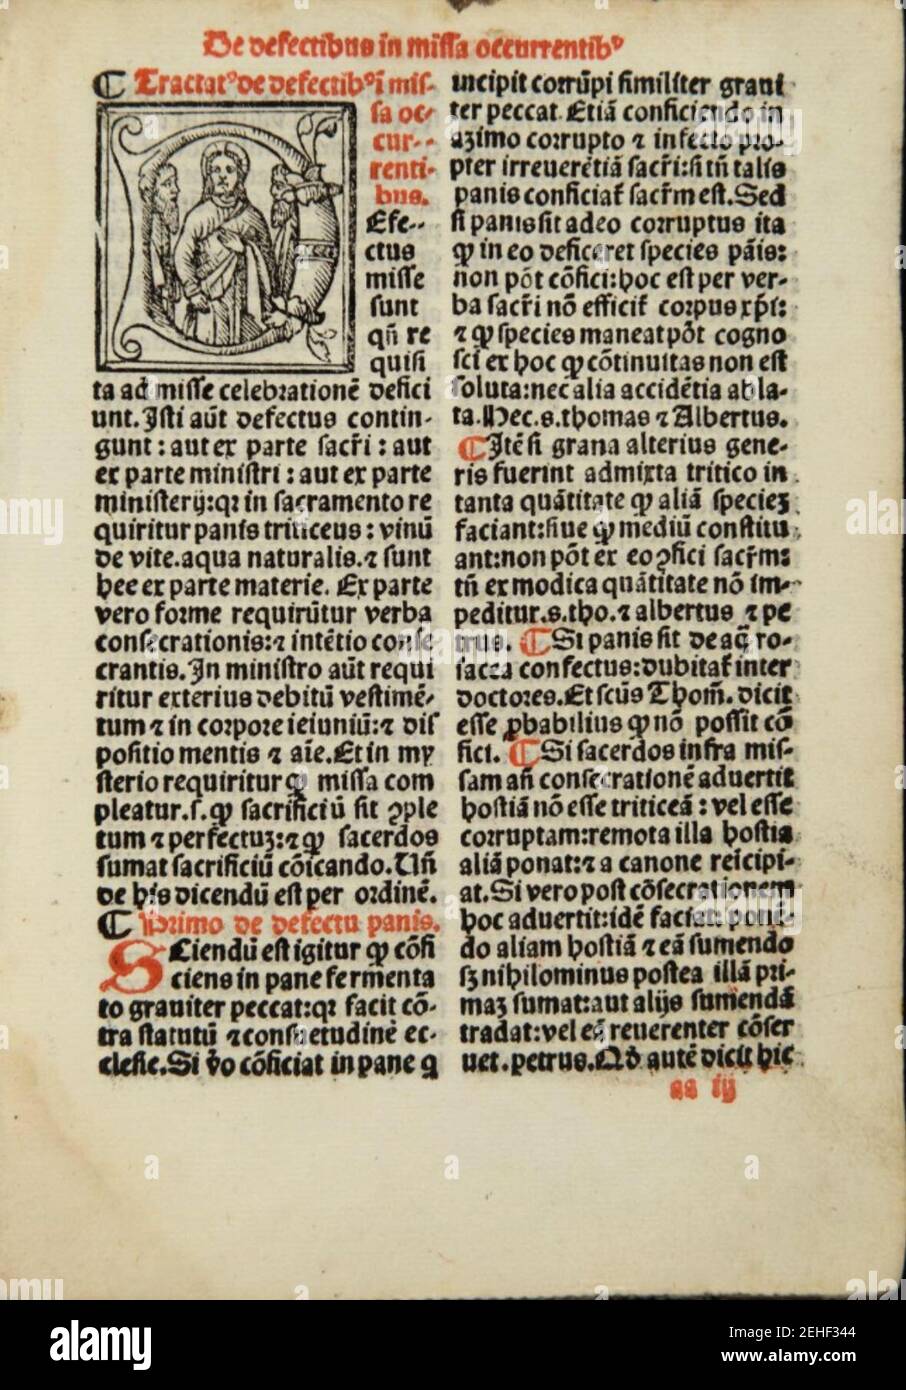 De defectibus in missa occurrentibꝰ
¶ Tractatꝰ de defectibꝰ ī mis-
sa oc-
cur--
renti-
bus.
DEfe--
ctus
misse
sunt
qñ re
quisi
ta ad misse celebrationē defici
unt. Isti aūt defectus contin-
gunt: aut ex parte sacr̄i: aut
ex parte ministri: aut ex parte
ministerij: qꝛ in sacramento re
quiritur panis triticeus: vinū
de vite. aqua naturalis. ⁊ sunt
hec ex parte materie. Ex parte
vero forme requirūtur verba
consecrationis: ⁊ intētio conse
crantis. In ministro aūt requi
ritur exterius debitū vestimē-
tum ⁊ in corpore ieiuniū: ⁊ dis
positio mentis ⁊ aīe. Et in my
sterio requiritur ꝙ missa com
pleatur. s. ꝙ sacrificiū sit ꝯple
tum ⁊ perfectuꝫ: ⁊ ꝙ sacerdos
sumat sacrificiū cōicando. Uñ
de his dicendū est per ordinē.
¶ Primo de defectu panis.
SCiendū est igitur ꝙ cōfi
ciens in pane fermenta
to grauiter peccat: qꝛ facit cō-
tra statutū ⁊ consuetudinē ec-
clesie. Si v̄o cōficiat in pane q
incipit corrūpi similiter graui
ter peccat. Etiā conficiendo in
azimo corrupto ⁊ infecto pro-
pter irreuerētiā sacr̄i: si tñ talis
panis conficiat̄ sacr̄m est. Sed
si panis sit adeo corruptus ita
ꝙ in eo deficeret species pāis:
non pōt cōfici: hoc est per ver-
ba sacr̄i nō efficit̄ corpus xp̄i:
⁊ ꝙ species maneat pōt cogno
sci ex hoc ꝙ cōtinuitas non est
soluta: nec alia accidētia abla-
ta. Hec. s. thomas ⁊ Albertus.
¶ Itē si grana alterius gene-
ris fuerint admixta tritico in
tanta quātitate ꝙ aliā specieꝫ
faciant: siue ꝙ mediū constitu
ant: non pōt ex eo ꝯfici sacr̄m:
tñ ex modica quātitate nō im-
peditur. s. tho. ⁊ albertus ⁊ pe
trus. ¶ Si panis sit de aq̄ ro-
sacea confectus: dubitat̄ inter
doctores. Et scūs Thom̄. dicit
esse ꝓbabilius ꝙ nō possit cō
fici. ¶ Si sacerdos infra mis-
sam añ consecrationē aduertit
hostiā nō esse triticeā: vel esse
corruptam: remota illa hostia
aliā ponat: ⁊ a canone reīcipi-
at. Si vero post cōsecrationem
hoc aduertit: idē faciat ponē-
do aliam hostiā ⁊ eā sumendo
sꝫ nihilominus postea illā pri-
maꝫ sumat: aut alijs sumendā
tradat: vel eā reuerenter cōser
uet. petrus. Qđ autē dicit hic
aa ij
alamy
Image ID: 2EHF344
www.alamy.com